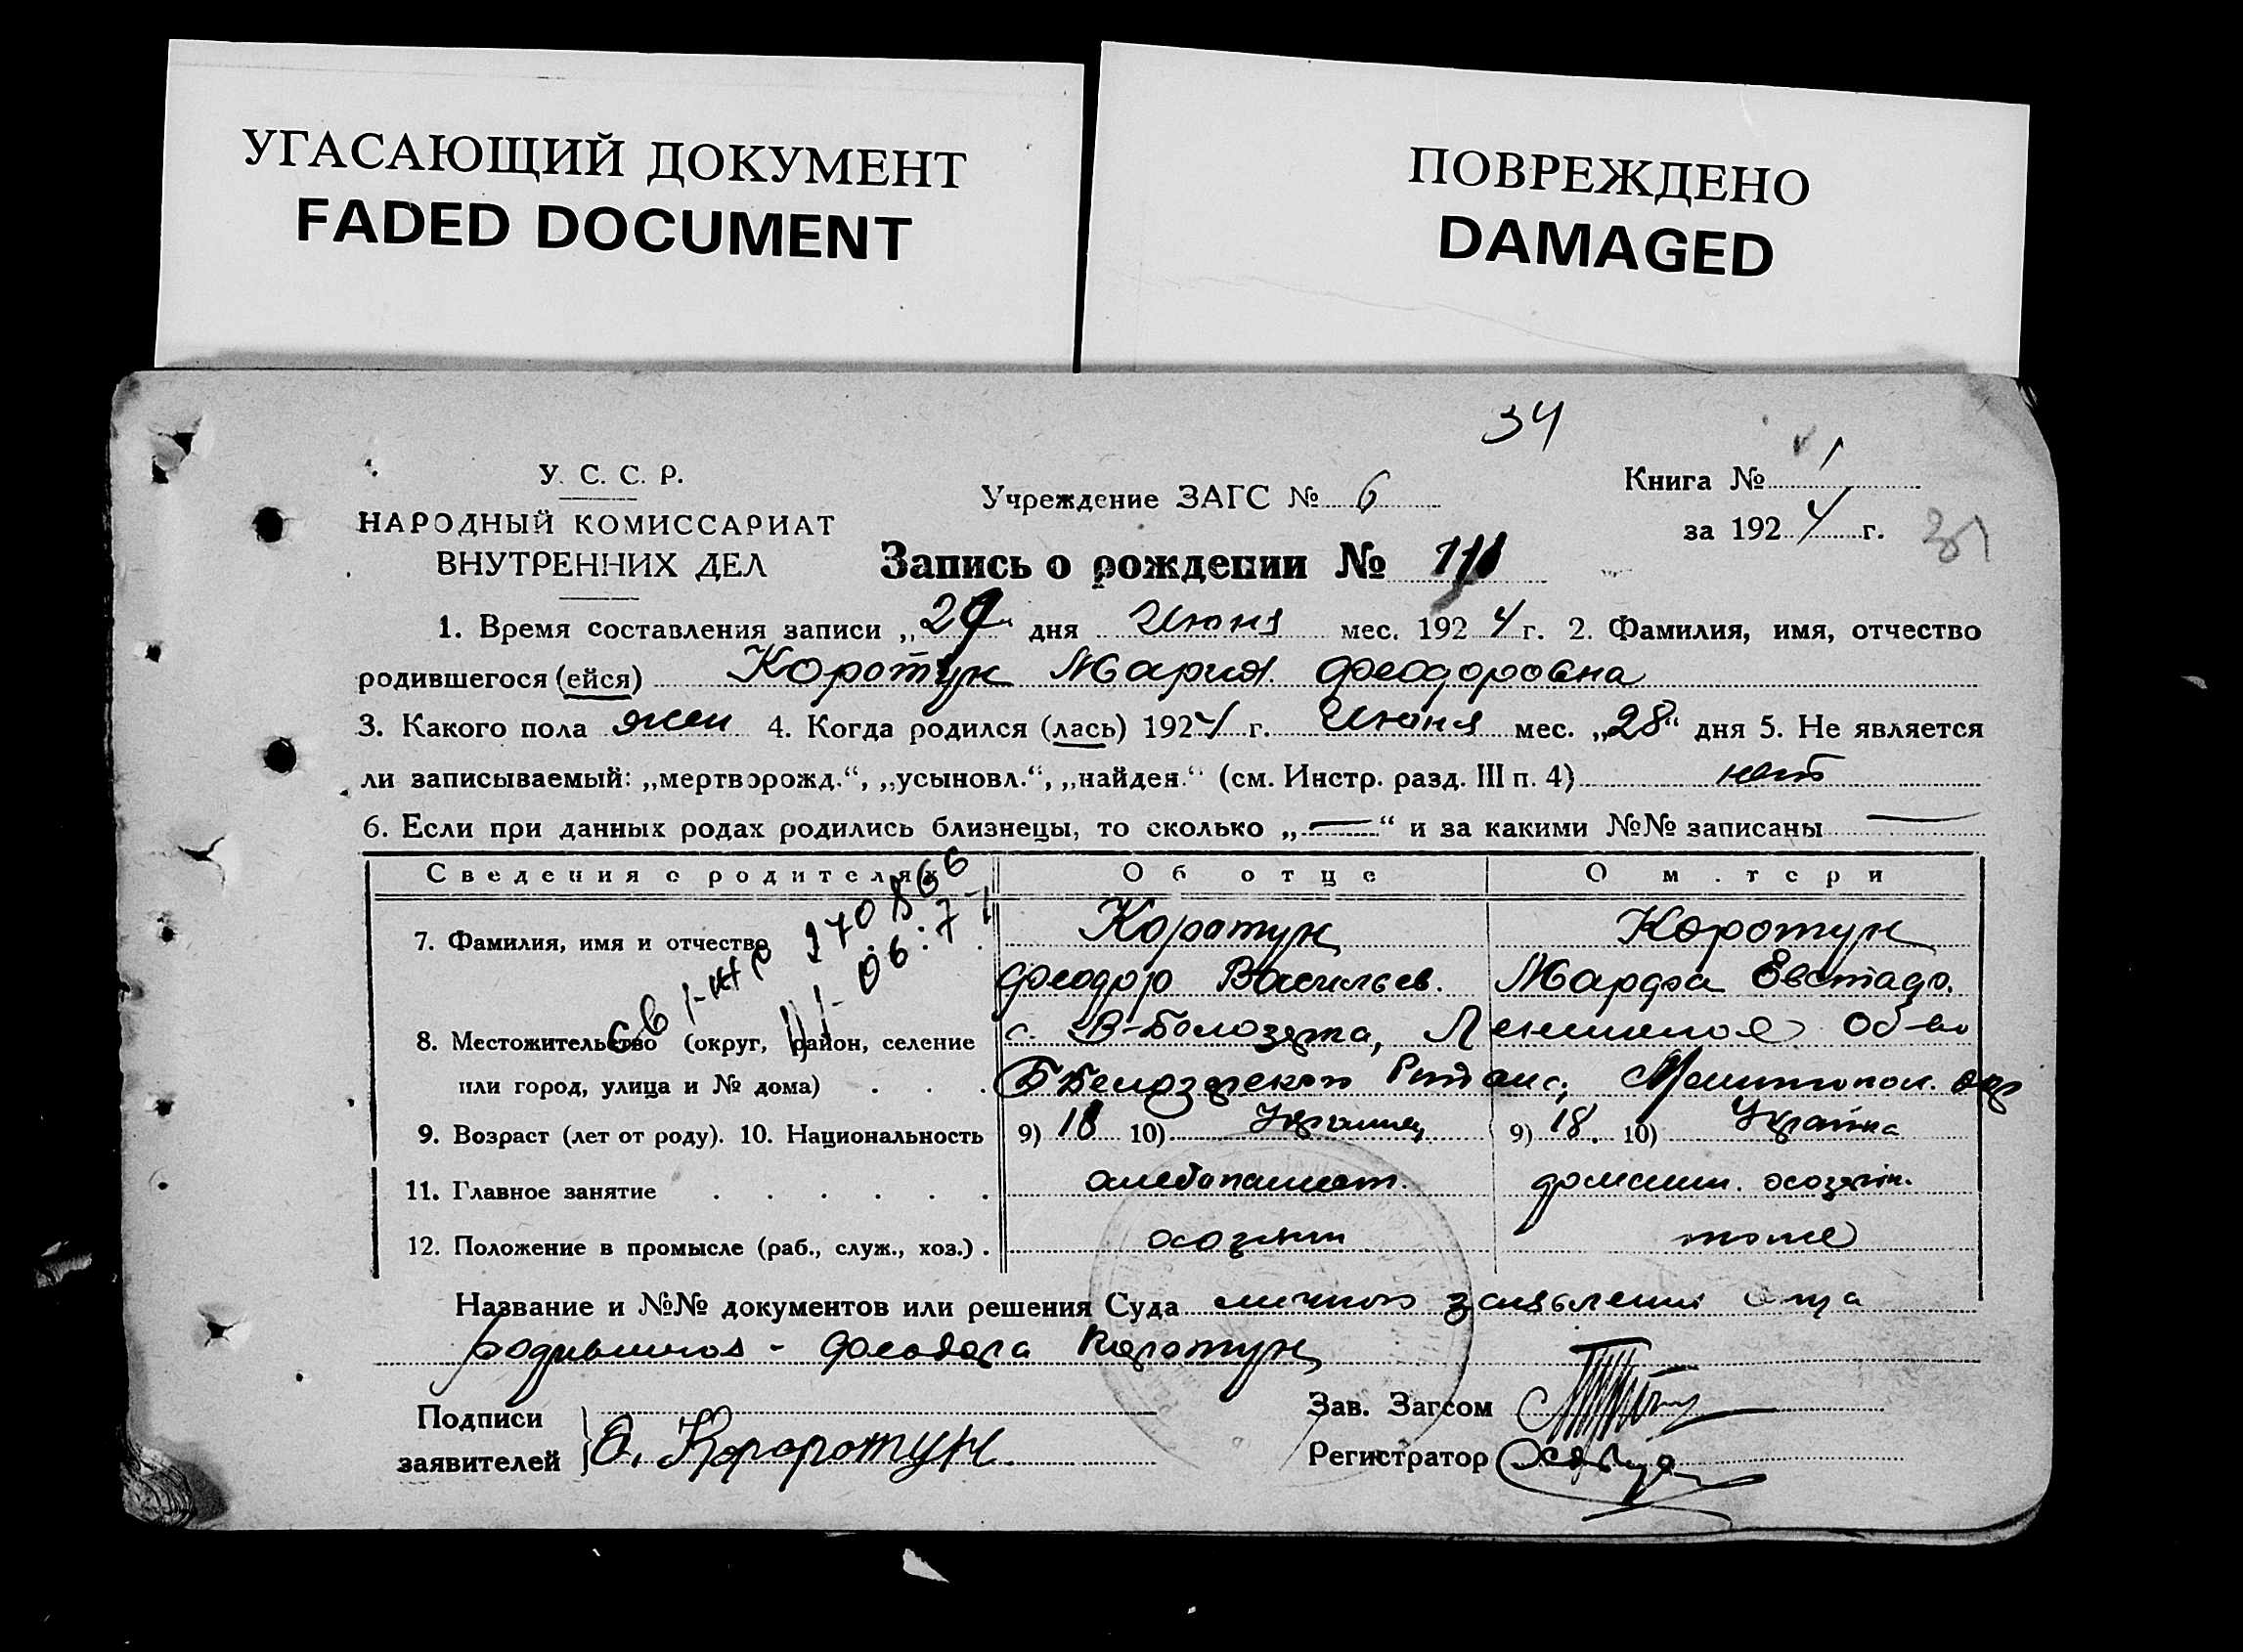 УГАСАЮЩИЙ ДОКУМЕНТ
FADED DOCUMENT
ПОВРЕЖДЕНО
DAMAGED
34
У. С. С. Р.
НАРОДНЫЙ КОМИССАРИАТ
ВНУТРЕННИХ ДЕЛ
Учреждение ЗАГС № 6
Книга № 1
за 1924 г.
Запись о рождении №
1. Время составления записи „29“ дня Июня мес. 1924 г. 2. Фамилия, имя, отчество
родившегося (ейся) Коротун Мария Феодоровна
3. Какого пола жен 4. Когда родился (лась) 1924 г. Июня мес. „28“ дня 5. Не является
ли записываемый: „мертворожд.“, „усыновл.“, „найден.“ (см. Инстр. разд. III п. 4) нет
6. Если при данных родах родились близнецы, то сколько „—“ и за какими №№ записаны —
Сведения о родителях Об отце О м.тери
7. Фамилия, имя и отчество Коротун Коротун
Феодор Васильев. Марфа Евстафо.
8. Местожительство (округ, район, селение с. В-Белозерка,
или город, улица и № дома) Мелитопол. окр
9. Возраст (лет от роду). 10. Национальность 9) 18 10) Украинец 9) 18. 10) Украинка
11. Главное занятие хлебопашест. домашн. хозяйн.
12. Положение в промысле (раб., служ., хоз.) . хозяин тоже
Название и №№ документов или решения Суда личного заявления отца
родившейся - Феодора Коротун
Подписи
заявителей Ф. Коротун
Зав. Загсом
Регистратор